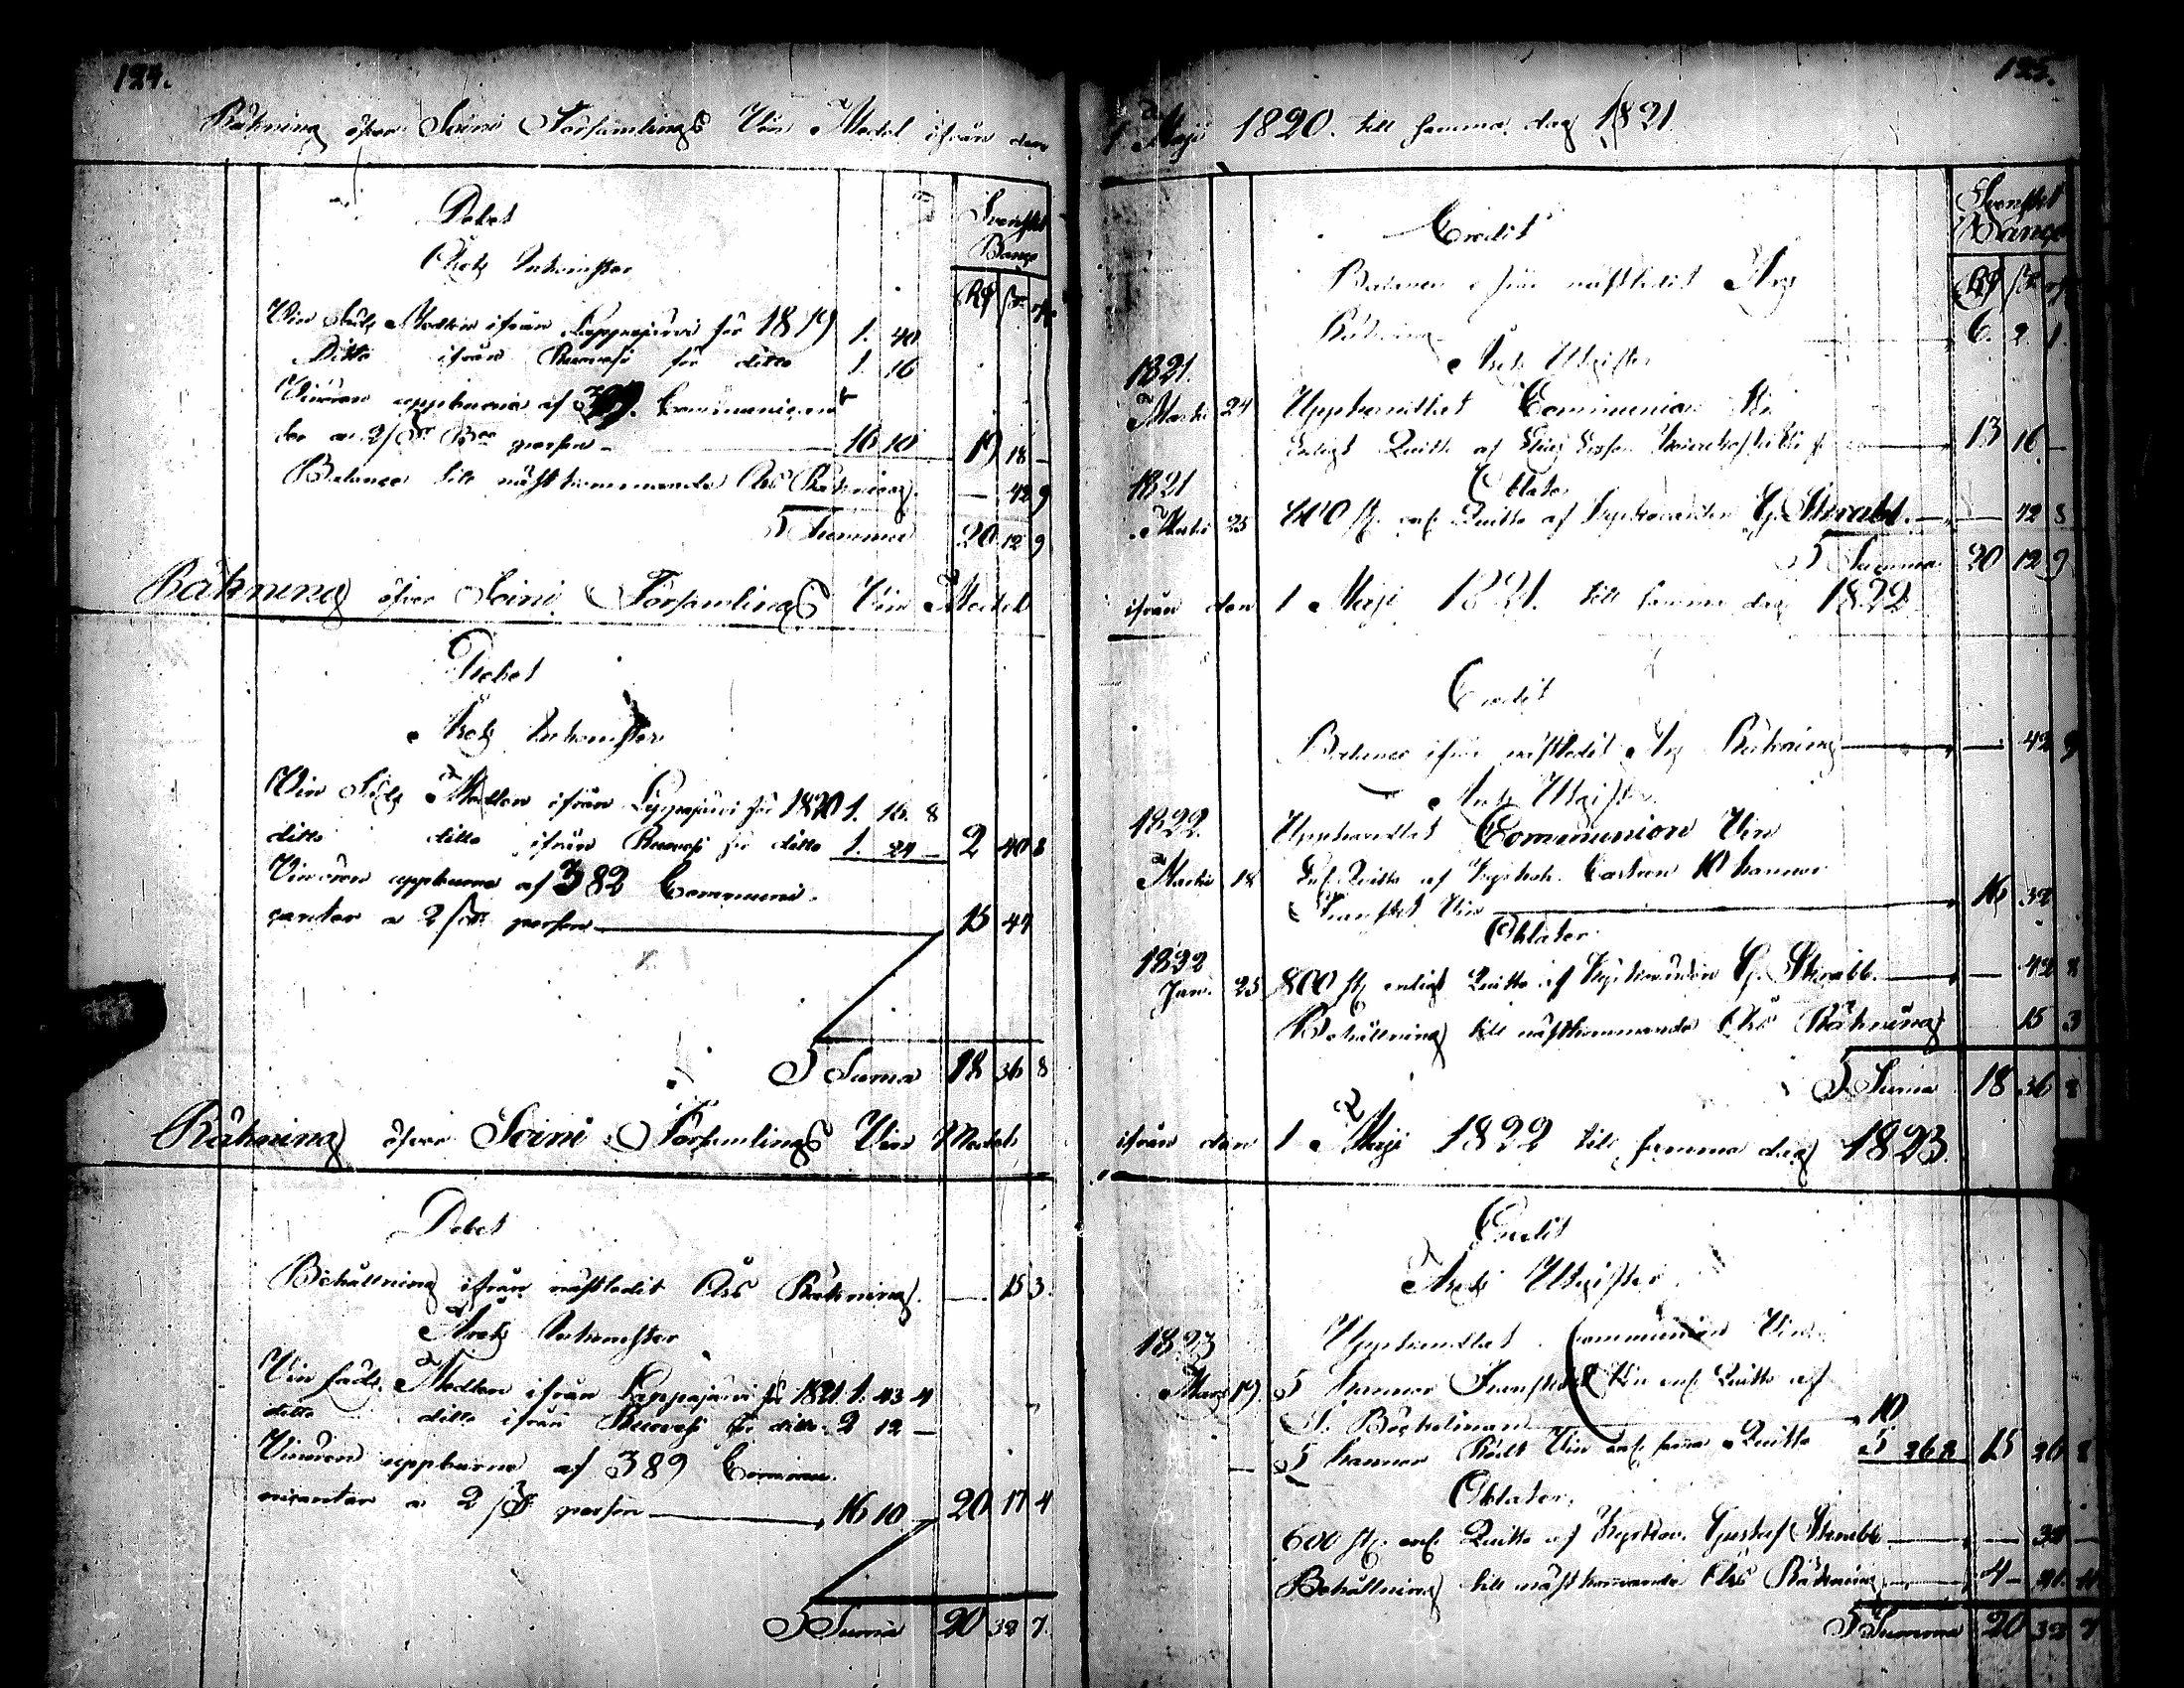 124.
Räkning öfver Soini Församlings Vin Medel ifrån den
Debet
Svenskt
Banco
Årets Inkomster
Rd sk rs
Vin Säds Medlen ifrån Lappajärvi för 1819 1. 40
Ditto ifrån Kuorasi för ditto 1. 16
Vinören uppburne af Communicant
ter a 2 sk Bco person 16 10 19 18 —
Balance till nästkommande Års Räkning — 42 9
Summa 20 12 9
Räkning öfver Soini Församlings Vin Medel
Debet
Årets Inkomster
Vin Säds Medlen ifrån Lappajärvi för 1820 1. 16. 8
ditto ditto ifrån för ditto 1. 24 — 2 40 8
Vinören uppburne af 382 Communi-
canter a 2 sk person 15 44
Summa 18 36 8
Räkning öfver Soini Församlings Vin Medel
Debet
Behållning ifrån nästledit Års Räkning — 15 3.
Årets Inkomster
Vin Säds Medlen ifrån Lappajärvi för 1821 1. 43 4
ditto ditto ifrån för ditto 2 12 —
Vinören uppburne af 389 Commu-
nicanter a 2 sk person 16 10 — 20 17 4
Summa 20 32 7.
125.
1. Maji 1820. till samma dag 1821
Credit
Svenskt
Banco
Rd sk rs
Balance ifrån nästledit Års
Räkning 6. 2. 1.
Årets Utgifter
1821.
Martii 24 Upphandlat Communion Vin
Enligt Quitto af 13 16 —
Oblater
1821
Martii 25 800 st. enl. Quitto af Kyrkovärden G. Skrabb — 42 8
Summa 20 12 9
ifrån den 1 Maji 1821. till samma dag 1822
Credit
Balance ifrån nästledit Års Räkning — 42 9
Årets Utgifter
1822. Upphandlat Communion Vin
Martii 18 Enl. Quitto af Castren 10 kannor
Franskt Vin 16 32
Oblater
1822
Jan. 25 800 st. enligt Quitto af Kyrkovärden G. Skrabb — 42 8
Behållning till nästkommande Års Räkning 15 3
Summa 18 36 8
ifrån den 1 Maji 1822 till samma dag 1823.
Credit
Årets Utgifter
1823 Upphandlat Communion Vin
Mars 19. 5 kannor Franskt Vin enl. Quitto af
Böckelman 10
— 5 kannor Rödt Vin enl. samma Quitto 5 26 8 15 26 8
Oblater.
600 st. enl. Quitto af Kyrkov. Gustaf Skrabb — 32 —
Behållning till nästkommande Års Räkning 4 — 21. 11
Summa 20 32 7